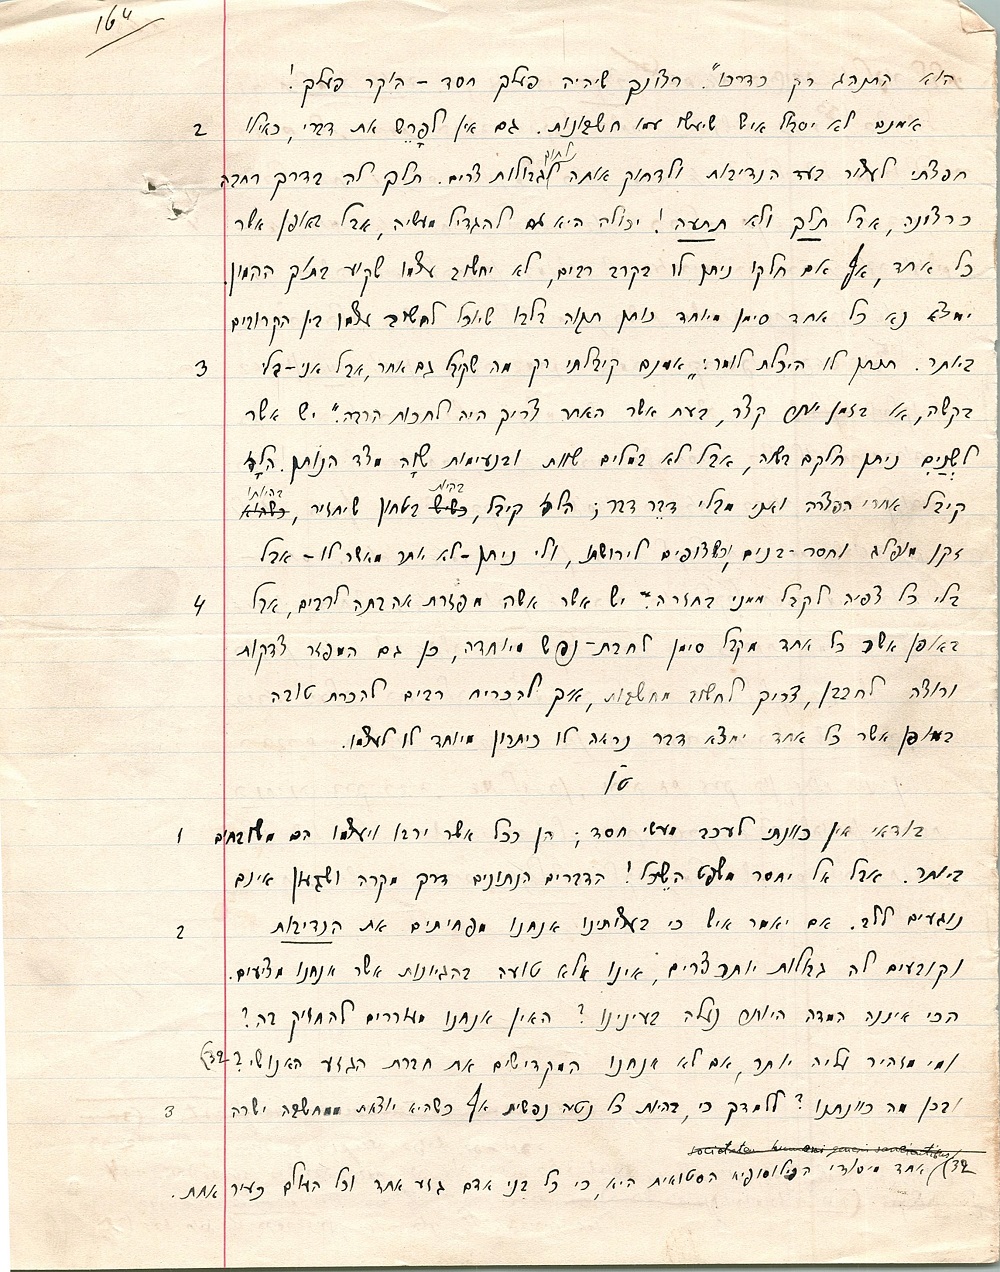 הוא התנהג רק כדרכו". רצונך שיהיה פעלך חסד – הוקר פעלך!
2 אמנם לא יסבול איש שיעשו עמו חשבונות. גם אין לפרש את דברי, כאילו
חפצתי לעצור בעד הנדיבות ולדחוק אותה לתוך גבולות צרים. תלך לה בדרך רחבה
כרצונה, אבל תלך ולא תתעה! יכולה היא גם להגדיל מעשיה, אבל באופן אשר
כל אחד, אף אם חלקו ניתן לו בקרב רבים, לא יחשוב עצמו שקוע בתוך ההמון
ימצא נא כל אחד סימן מיוחד נותן תקוה בלבו שיוכל לחשוב עצמו בין הקרובים
3 ביותר. תתתן לו היכולת לומר: "אמנם קיבלתי רק מה שקיבל גם אחר, אבל אני–בלי
בקשה, או בזמן יותר קצר, בעת אשר האחר צריך היה לחכות הרבה." יש אשר
לשנים ניתן חלקם בשוה, אבל לא במלים שוות ובנעימות שוה מצד הנותן. הלז
קיבל אחרי הפצרה ואני מבלי דבר דבר; הלז קיבל, בהיות בטחון שיחזיר, בהיותו
זקן מופלג וחסר-בנים, וכשצופים לירושתו, ולי ניתן–לא יותר מאשר לו–אבל
4 בלי כל צפיה לקבל ממני בחזרה." יש אשר אשה מפזרת אהבתה לרבים, אבל
באופן אשר כל אחד מקבל סימן לחבת-נפש מיוחדה, כן גם המפזר צדקות
ורוצה לחבבן, צריך לחשוב מחשבות, איך להכריח רבים להכרת טובה
באופן אשר כל אחד ימצא דבר נראה לו כיתרון מיוחד לו לעצמו.
טו
1 בודאי אין כוונתי לעכב מעשי חסד; הן ככל אשר ירבו ויעצמו הם משובחים
ביותר. אבל אל יחסר משפט השכל! הדברים הנתונים דרך מקרה ושגעון אינם
2 נוגעים ללב. אם יאמר איש כי בעצותינו אנחנו מפחיתים את הנדיבות
וקובעים לה גבולות יותר צרים, אינו אלא טועה בהגיונות אשר אנחנו מציעים.
הכי איננה המדה היותר נעלה בעינינו? האין אנחנו מעוררים להחזיק בה?
ומי מזהיר עליה יותר, אם לא אנחנו המקדישים את חברת הגזע האנושי? (32
3 ובכן מה כוונתנו? ללמדך כי, בהיות כל נטיה נפשית אף כשהיא יוצאת ממחשבה ישרה
societatem humani generis sancientibus
32) אחד מיסודי הפילוסופיא הסטואית היא, כי כל בני אדם גזע אחד וכל העולם כעיר אחת.